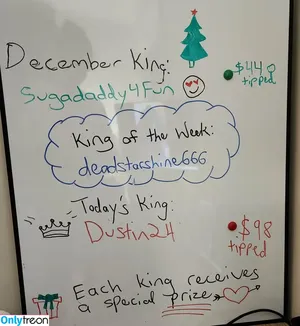 December King:
Sugadaddy4Fun
$440
tipped
King of the Week:
deadstarshine666
Today's King:
Dustin24
$98
tipped
Each king receives
a special prize
Onlytreon